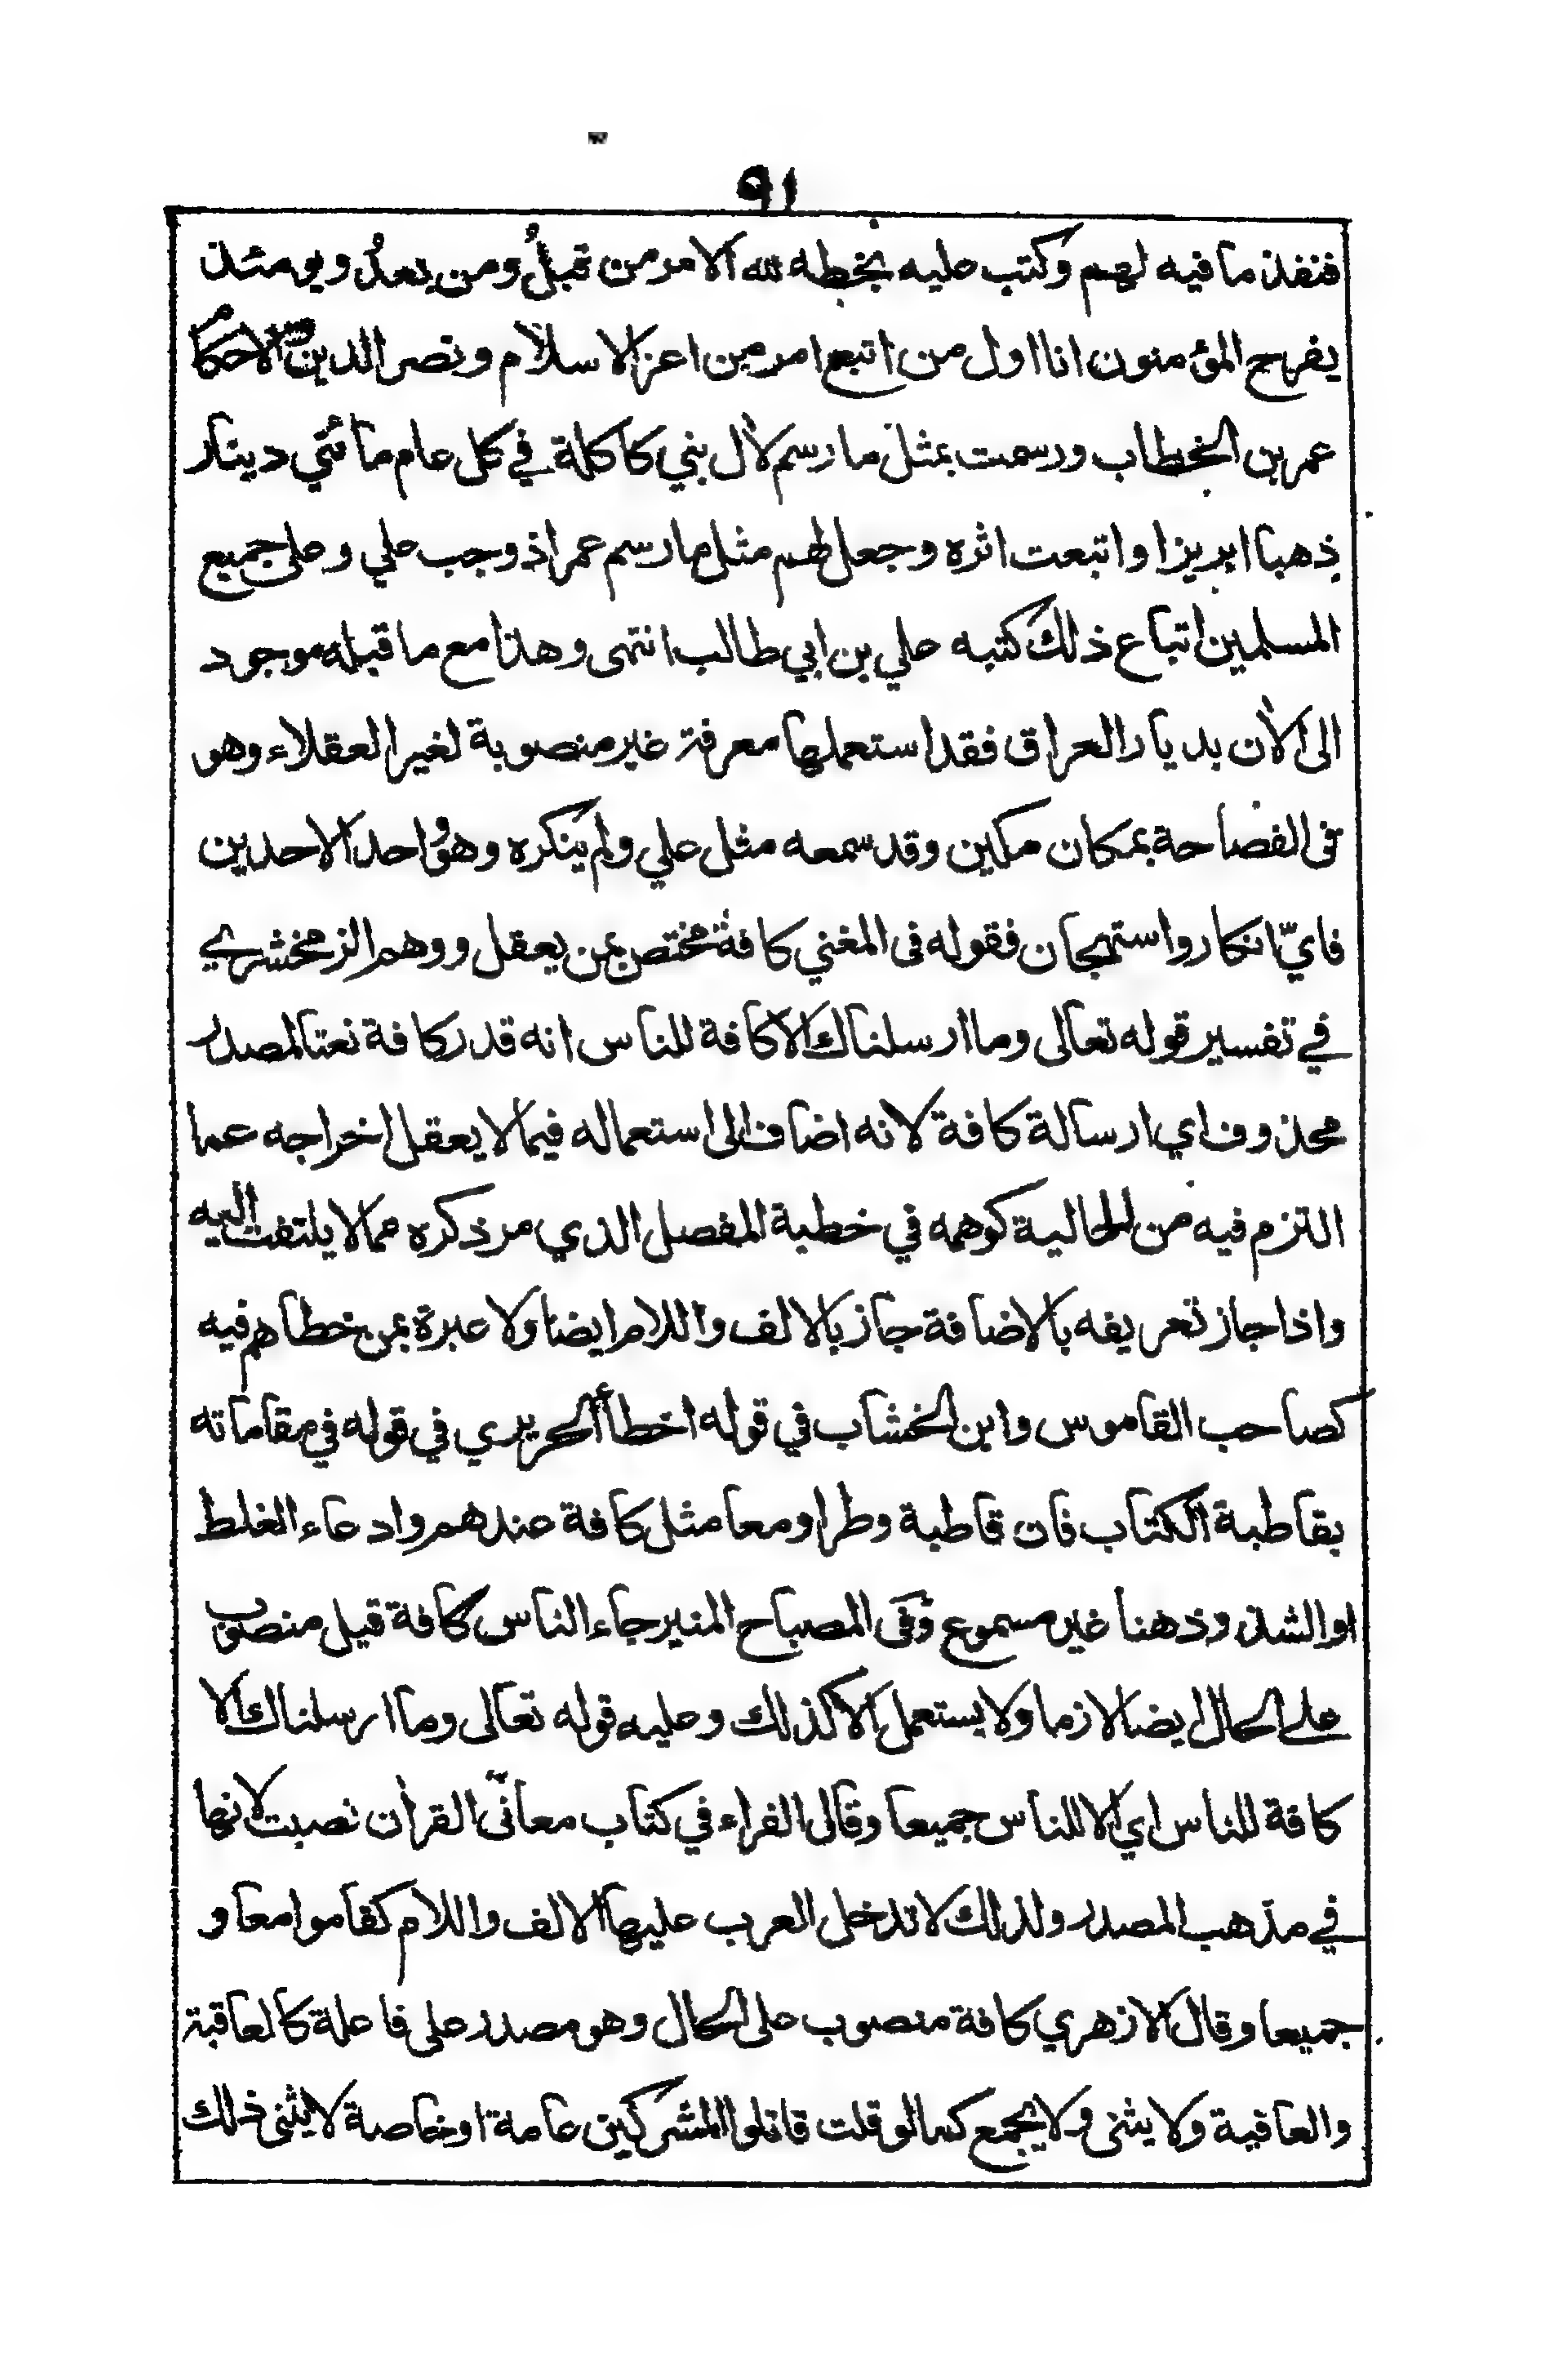 ٩١
فنفذ ما فيه لهم وكتب عليه بخطه لله الامر من قبلُ ومن بعدُ ويومئذ
يفرح المؤمنون انا اول من اتبع امر من اعز الاسلام ونصر الدين والاحكام
عمر بن الخطاب ورسمت بمثل ما رسم لآل بني كاكلة في كل عام مائتي دينار
ذهبا ابريزا واتبعت اثره وجعل لهم مثل ما رسم عمر اذ وجب علي وعلى جميع
المسلمين اتباع ذلك كتبه علي بن ابي طالب انتهى وهذا مع ما قبله موجود
الى الآن بديار العراق فقد استعملها معرفة غير منصوبة لغير العقلاء وهو
فى الفصاحة بمكان مكين وقد سمعه مثل علي ولم ينكره وهو واحد الاحدين
فايّ انكار واستهجان فقوله فى المغني كافة مختص بمن يعقل ووهم الزمخشري
في تفسير قوله تعالى وما ارسلناك الا كافة للناس انه قدر كافة نعتا لمصدر
محذوف اي ارسالة كافة لانه اضاف الى استعماله فيما لا يعقل اخراجه عما
التزم فيه من الحالية كوهمه في خطبة المفصل الذي مر ذكره مما لا يلتفت اليه
واذا جاز تعريفه بالاضافة جاز بالالف واللام ايضا ولا عبرة بمن خطاهم فيه
كصاحب القاموس وابن الخشاب في قوله اخطأ الحريري في قوله في مقاماته
بقاطبة الكتاب فان قاطبة وطرا ومعا مثل كافة عندهم وادعاء الغلط
او الشذوذ هنا غير مسموع وفى المصباح المنير جاء الناس كافة قيل منصوب
على الحال ايضا لازما ولا يستعمل الا كذلك وعليه قوله تعالى وما ارسلناك الا
كافة للناس اي الا للناس جميعا وقال الفراء في كتاب معانى القرآن نصبت لانها
في مذهب المصدر ولذلك لا تدخل العرب عليها الالف واللام كقاموا معا و
جميعا وقال الازهري كافة منصوب على الحال وهو مصدر على فاعلة كالعاقبة
والعافية ولا يثنى ولا يجمع كما لو قلت قاتلوا المشركين عامة او خاصة لا يثنى ذلك